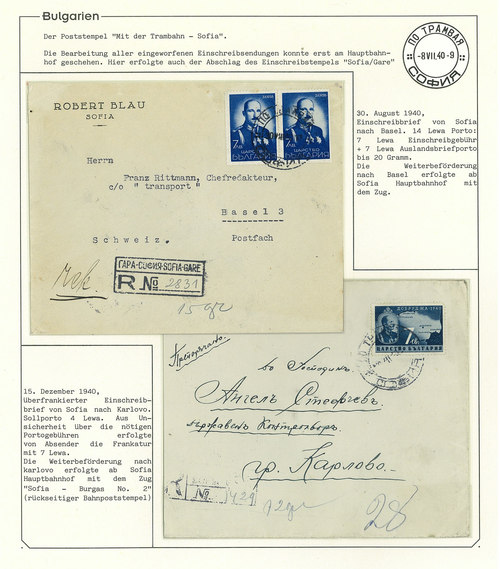 Bulgarien
Der Poststempel "Mit der Trambahn - Sofia".
Die Bearbeitung aller eingeworfenen Einschreibsendungen konnte erst am Hauptbahn-
hof geschehen. Hier erfolgte auch der Abschlag des Einschreibstempels "Sofia/Gare"
ПО ТРАМВАЯ
-8VII.40-9
СОФИЯ
ROBERT BLAU
SOFIA
7 лв
ЦАРСТВО
БЪЛГАРИЯ
7 лв
ЦАРСТВО
БЪЛГАРИЯ
Herrn
Franz Rittmann, Chefredakteur,
c/o " transport "
Basel 3
Schweiz.
Postfach
ГАРА-СОФИЯ-SOFIA-GARE
R № 2831
30. August 1940,
Einschreibbrief von Sofia
nach Basel. 14 Lewa Porto:
7 Lewa Einschreibgebühr
+ 7 Lewa Auslandbriefporto
bis 20 Gramm.
Die Weiterbeförderung
nach Basel erfolgte ab
Sofia Hauptbahnhof mit
dem Zug.
15. Dezember 1940,
Überfrankierter Einschreib-
brief von Sofia nach Karlovo.
Sollporto 4 Lewa. Aus Un-
sicherheit über die nötigen
Portogebühren erfolgte
von Absender die Frankatur
mit 7 Lewa.
Die Weiterbeförderung nach
karlovo erfolgte ab Sofia
Hauptbahnhof mit dem Zug
"Sofia - Burgas No. 2"
(rückseitiger Bahnpoststempel)
ДОБРУДЖА
7 лв
ЦАРСТВО БЪЛГАРИЯ
Препоръчано.
до Господинъ
Ангелъ Стефчевъ.
Държавенъ Контрольоръ.
гр. Карлово.
№ 429
28